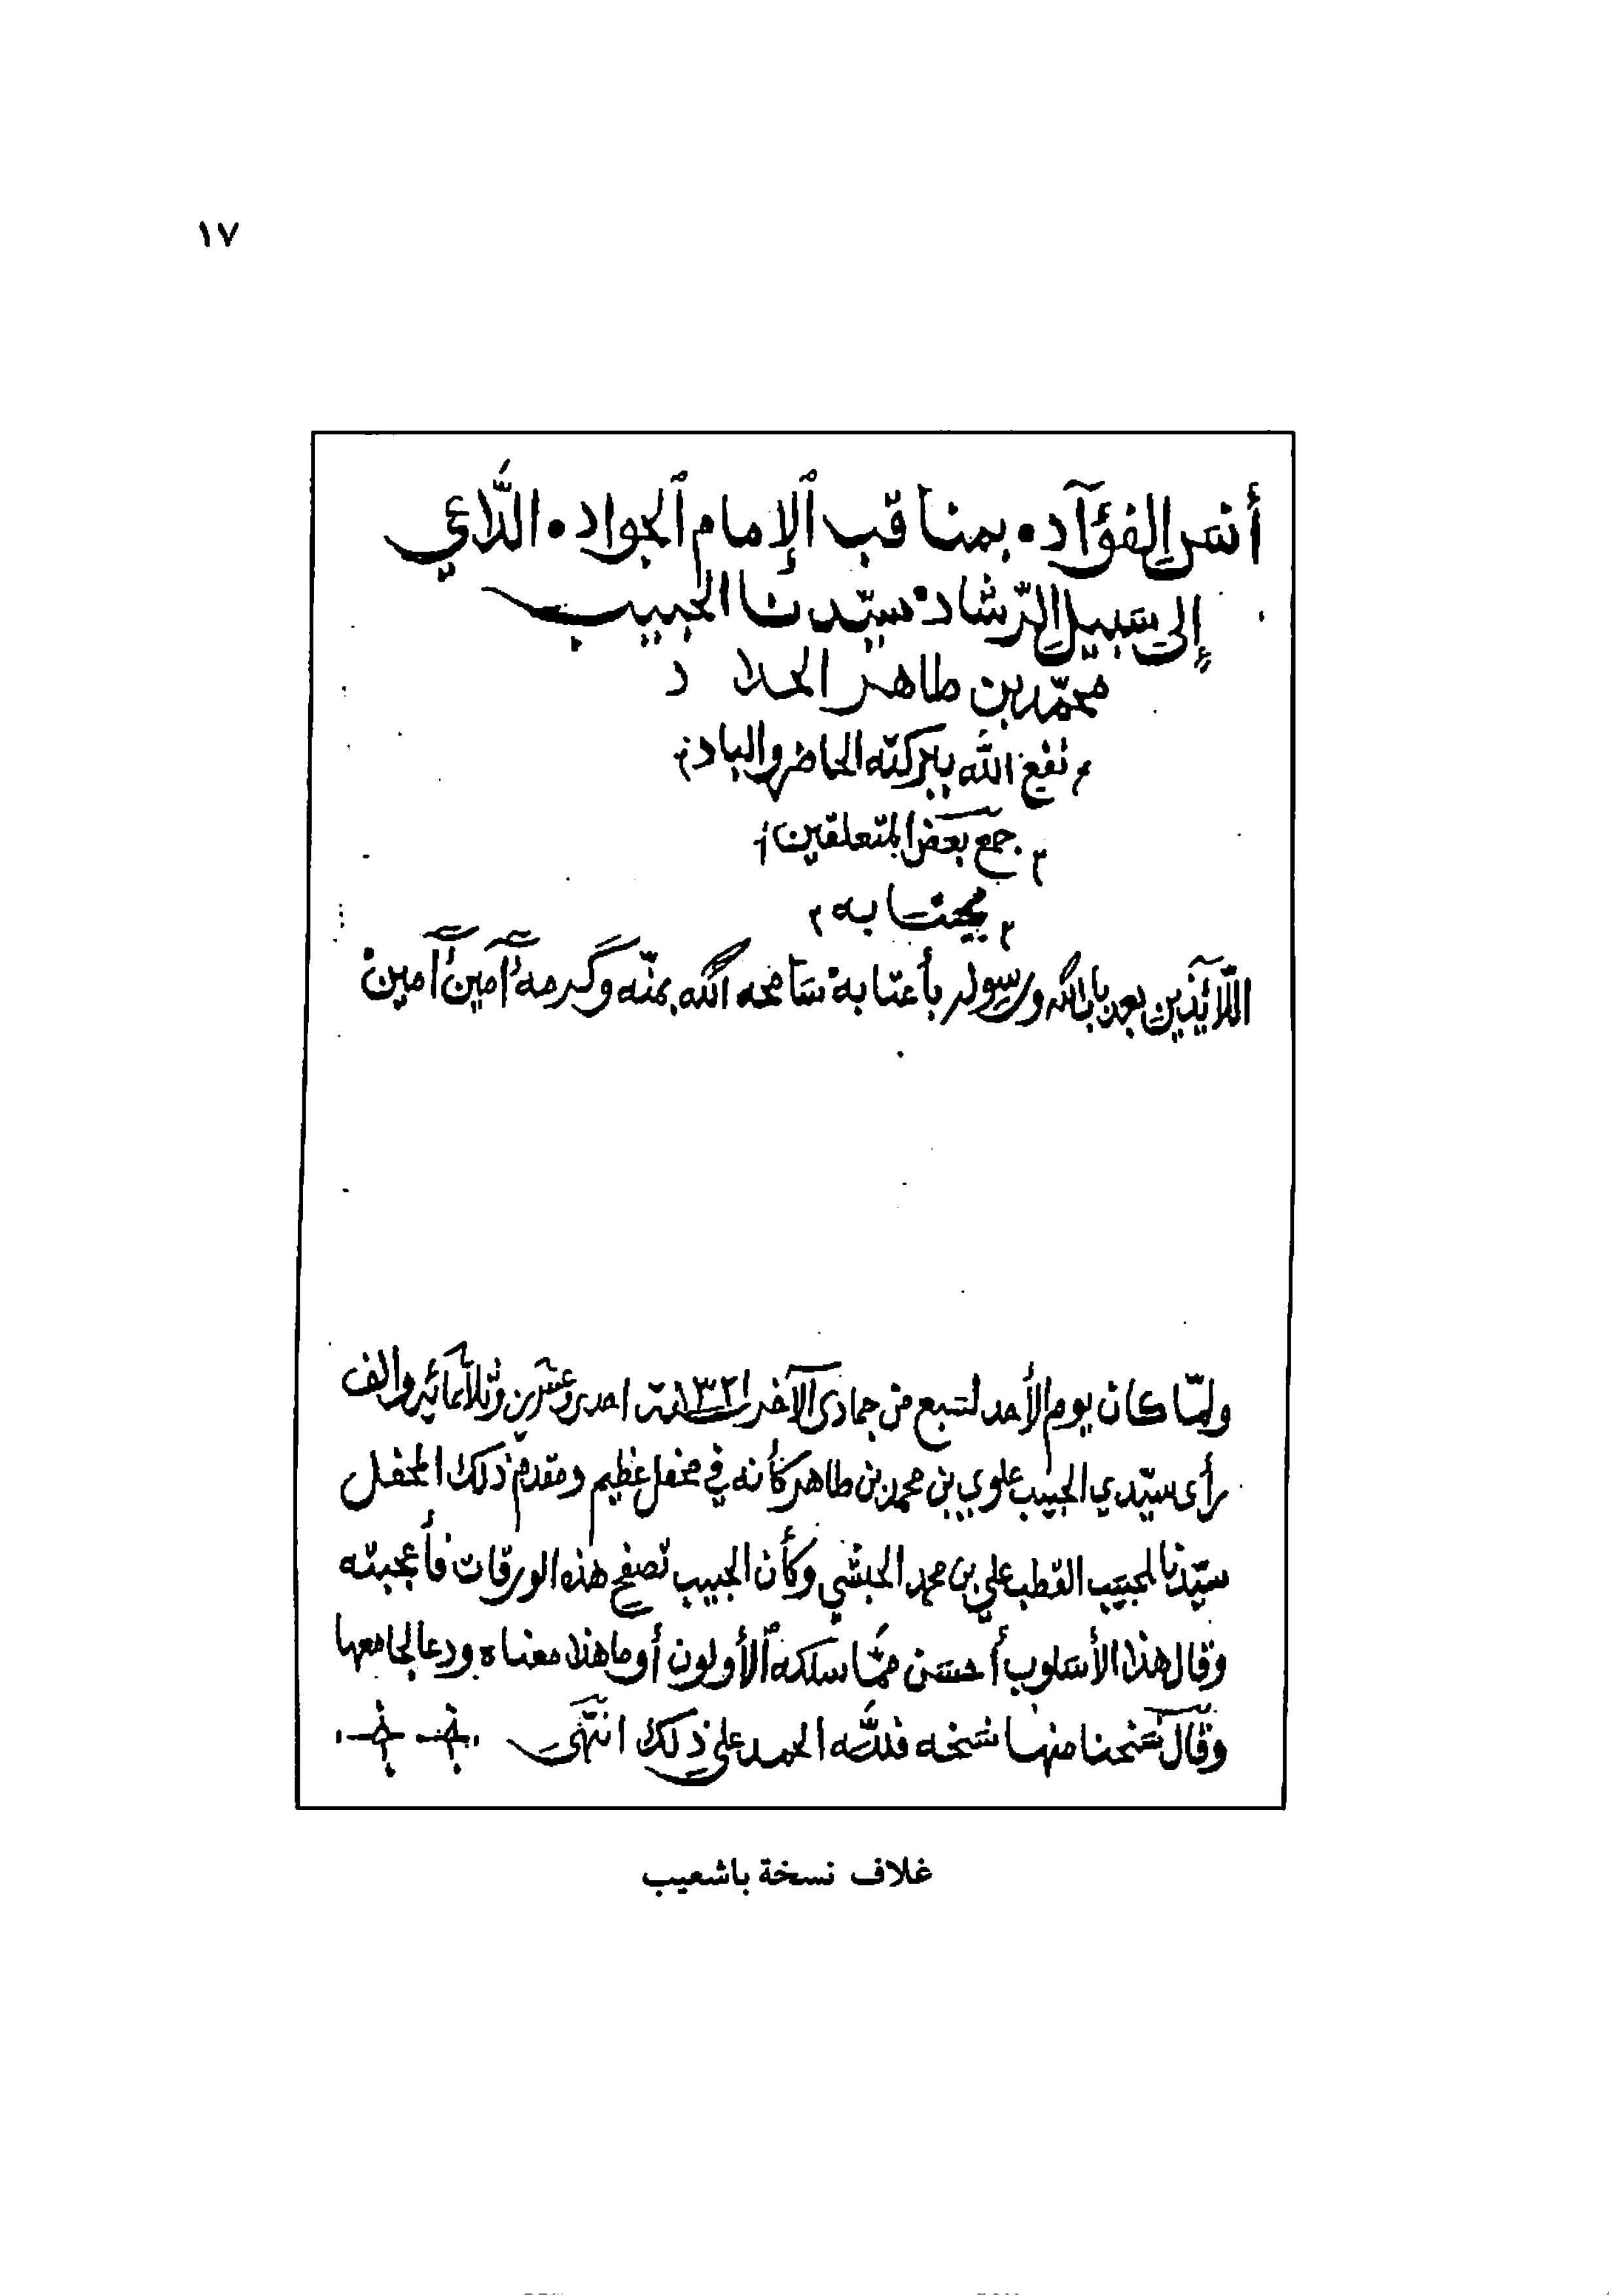 ١٧
أنس الفؤآد • بمناقب ٱلإمام ٱلجواد • الدّاعي
إلى سَبيل الرّشاد • سيّدنا الحبيب
محمّد بن طاهر الحداد
نفع الله ببركته الحاضر والباد
جمع بعض المتعلقين
بجنابه
اللّائذين بعد بالله ورسوله بأعتابه سَامحه الله بمنّه وكرمه آمين آمين
ولمّا كان يوم الأحد لتسع من جمادى الآخر ١٣٢١ سنة احد وعشرين وثلاثمائه والف
رأى سيّدي الحبيب علوي بن محمد بن طاهر كأنه في محفل عظيم ومقدم ذلك المحفل
سيّدنا الحبيب القطب علي بن محمد الحبشي وكأن الحبيب تصفح هذه الورقات فأعجبته
وقال هذا الأسلوب أحسن ممّا سلكه ٱلأولون أو ما هذا معناه ودعا لجامعها
وقال نسخنا منها نسخه فللّه الحمد على ذلك انتهى
غلاف نسخة باشعيب